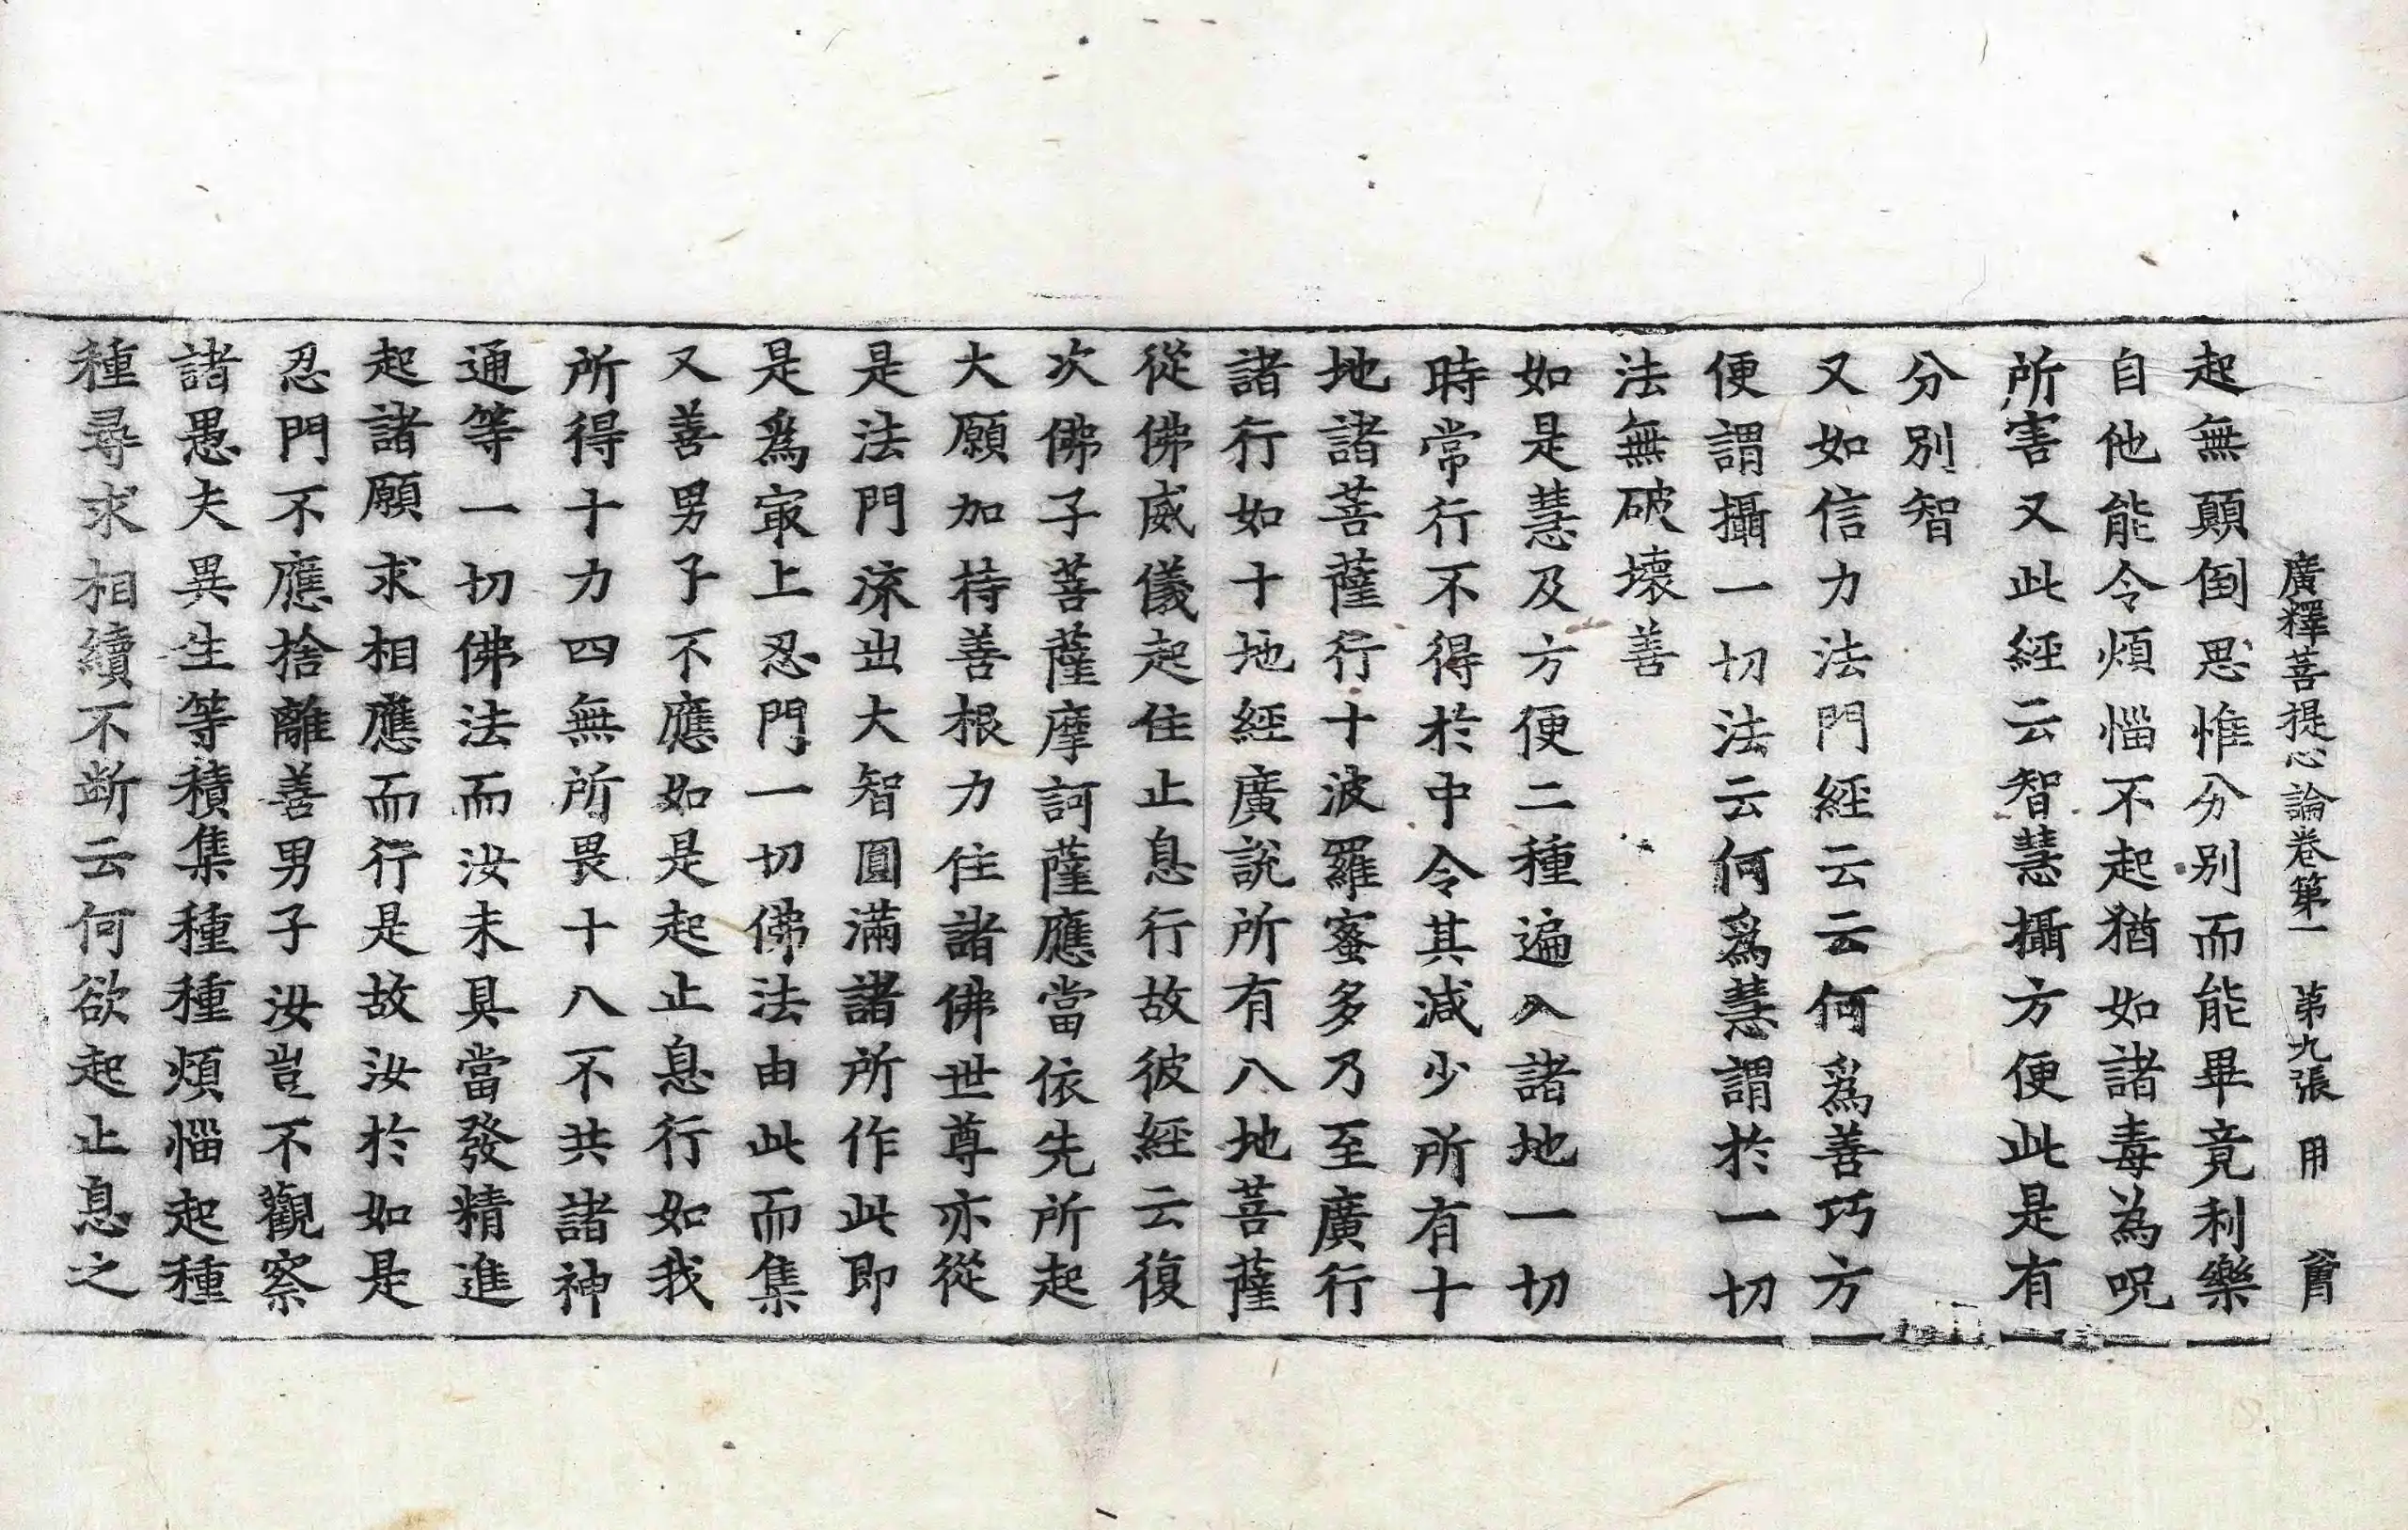 廣釋菩提心論卷第一 第九張 用
起無顛倒思惟分別而能畢竟利樂
自他能令煩惱不起猶如諸毒為呪
所害又此經云智慧攝方便此是有
分別智
又如信力法門經云云何爲善巧方
便謂攝一切法云何爲慧謂於一切
法無破壞善
如是慧及方便二種遍入諸地一切
時常行不得於中令其減少所有十
地諸菩薩行十波羅蜜多乃至廣行
諸行如十地經廣說所有八地菩薩
從佛威儀起住止息行故彼經云復
次佛子菩薩摩訶薩應當依先所起
大願加持善根力住諸佛世尊亦從
是法門流出大智圓滿諸所作此即
是爲㝡上忍門一切佛法由此而集
又善男子不應如是起止息行如我
所得十力四無所畏十八不共諸神
通等一切佛法而汝未具當發精進
起諸願求相應而行是故汝於如是
忍門不應捨離善男子汝豈不觀察
諸愚夫異生等積集種種煩惱起種
種尋求相續不断云何欲起止息之